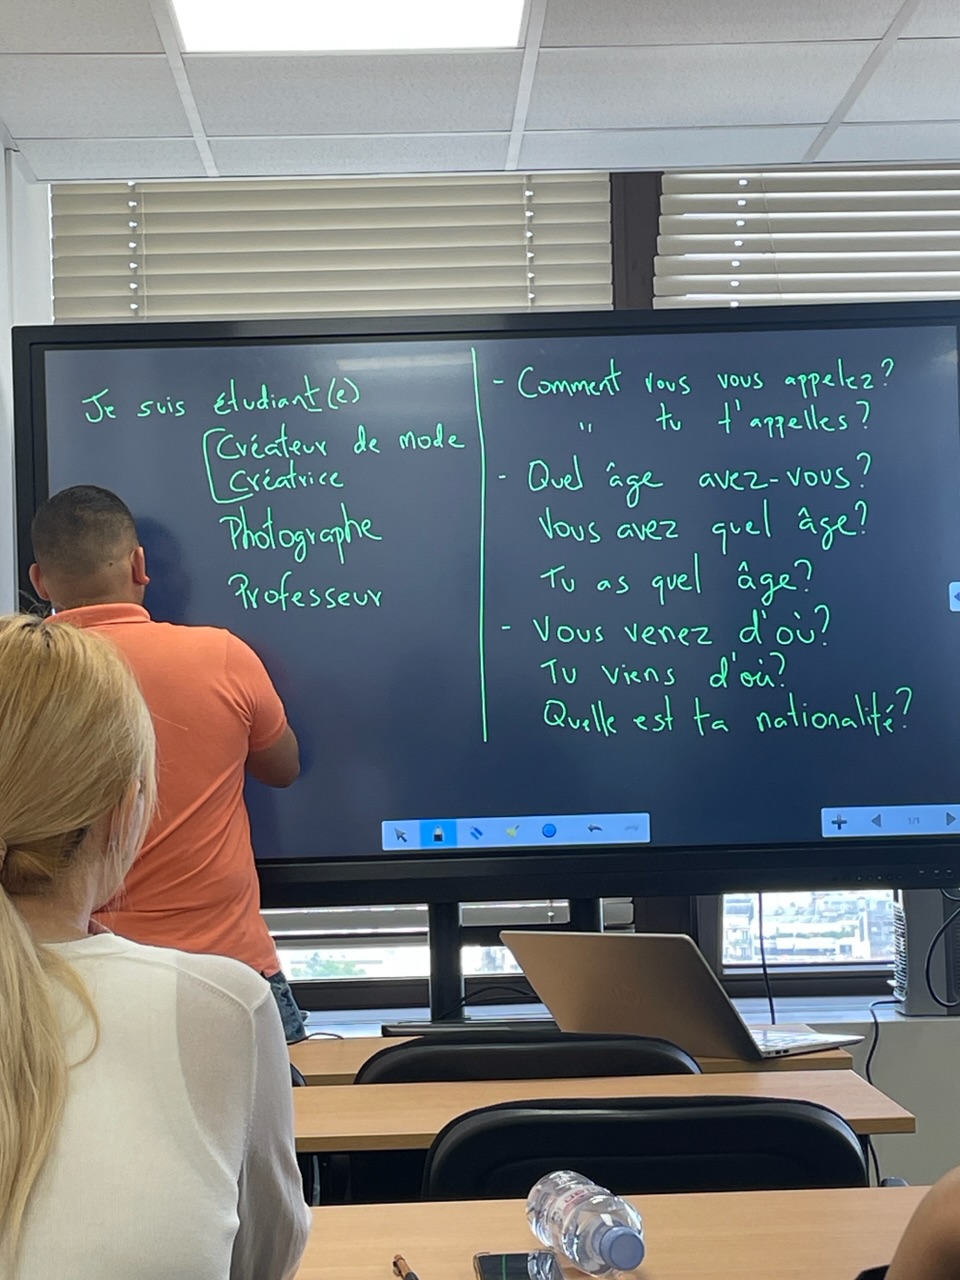 Je suis étudiant(e)
Créateur de mode
Créatrice
Photographe
Professeur
- Comment vous vous appelez?
" tu t'appelles?
- Quel âge avez-vous?
Vous avez quel âge?
Tu as quel âge?
- Vous venez d'où?
Tu viens d'où?
Quelle est ta nationalité?
1/1